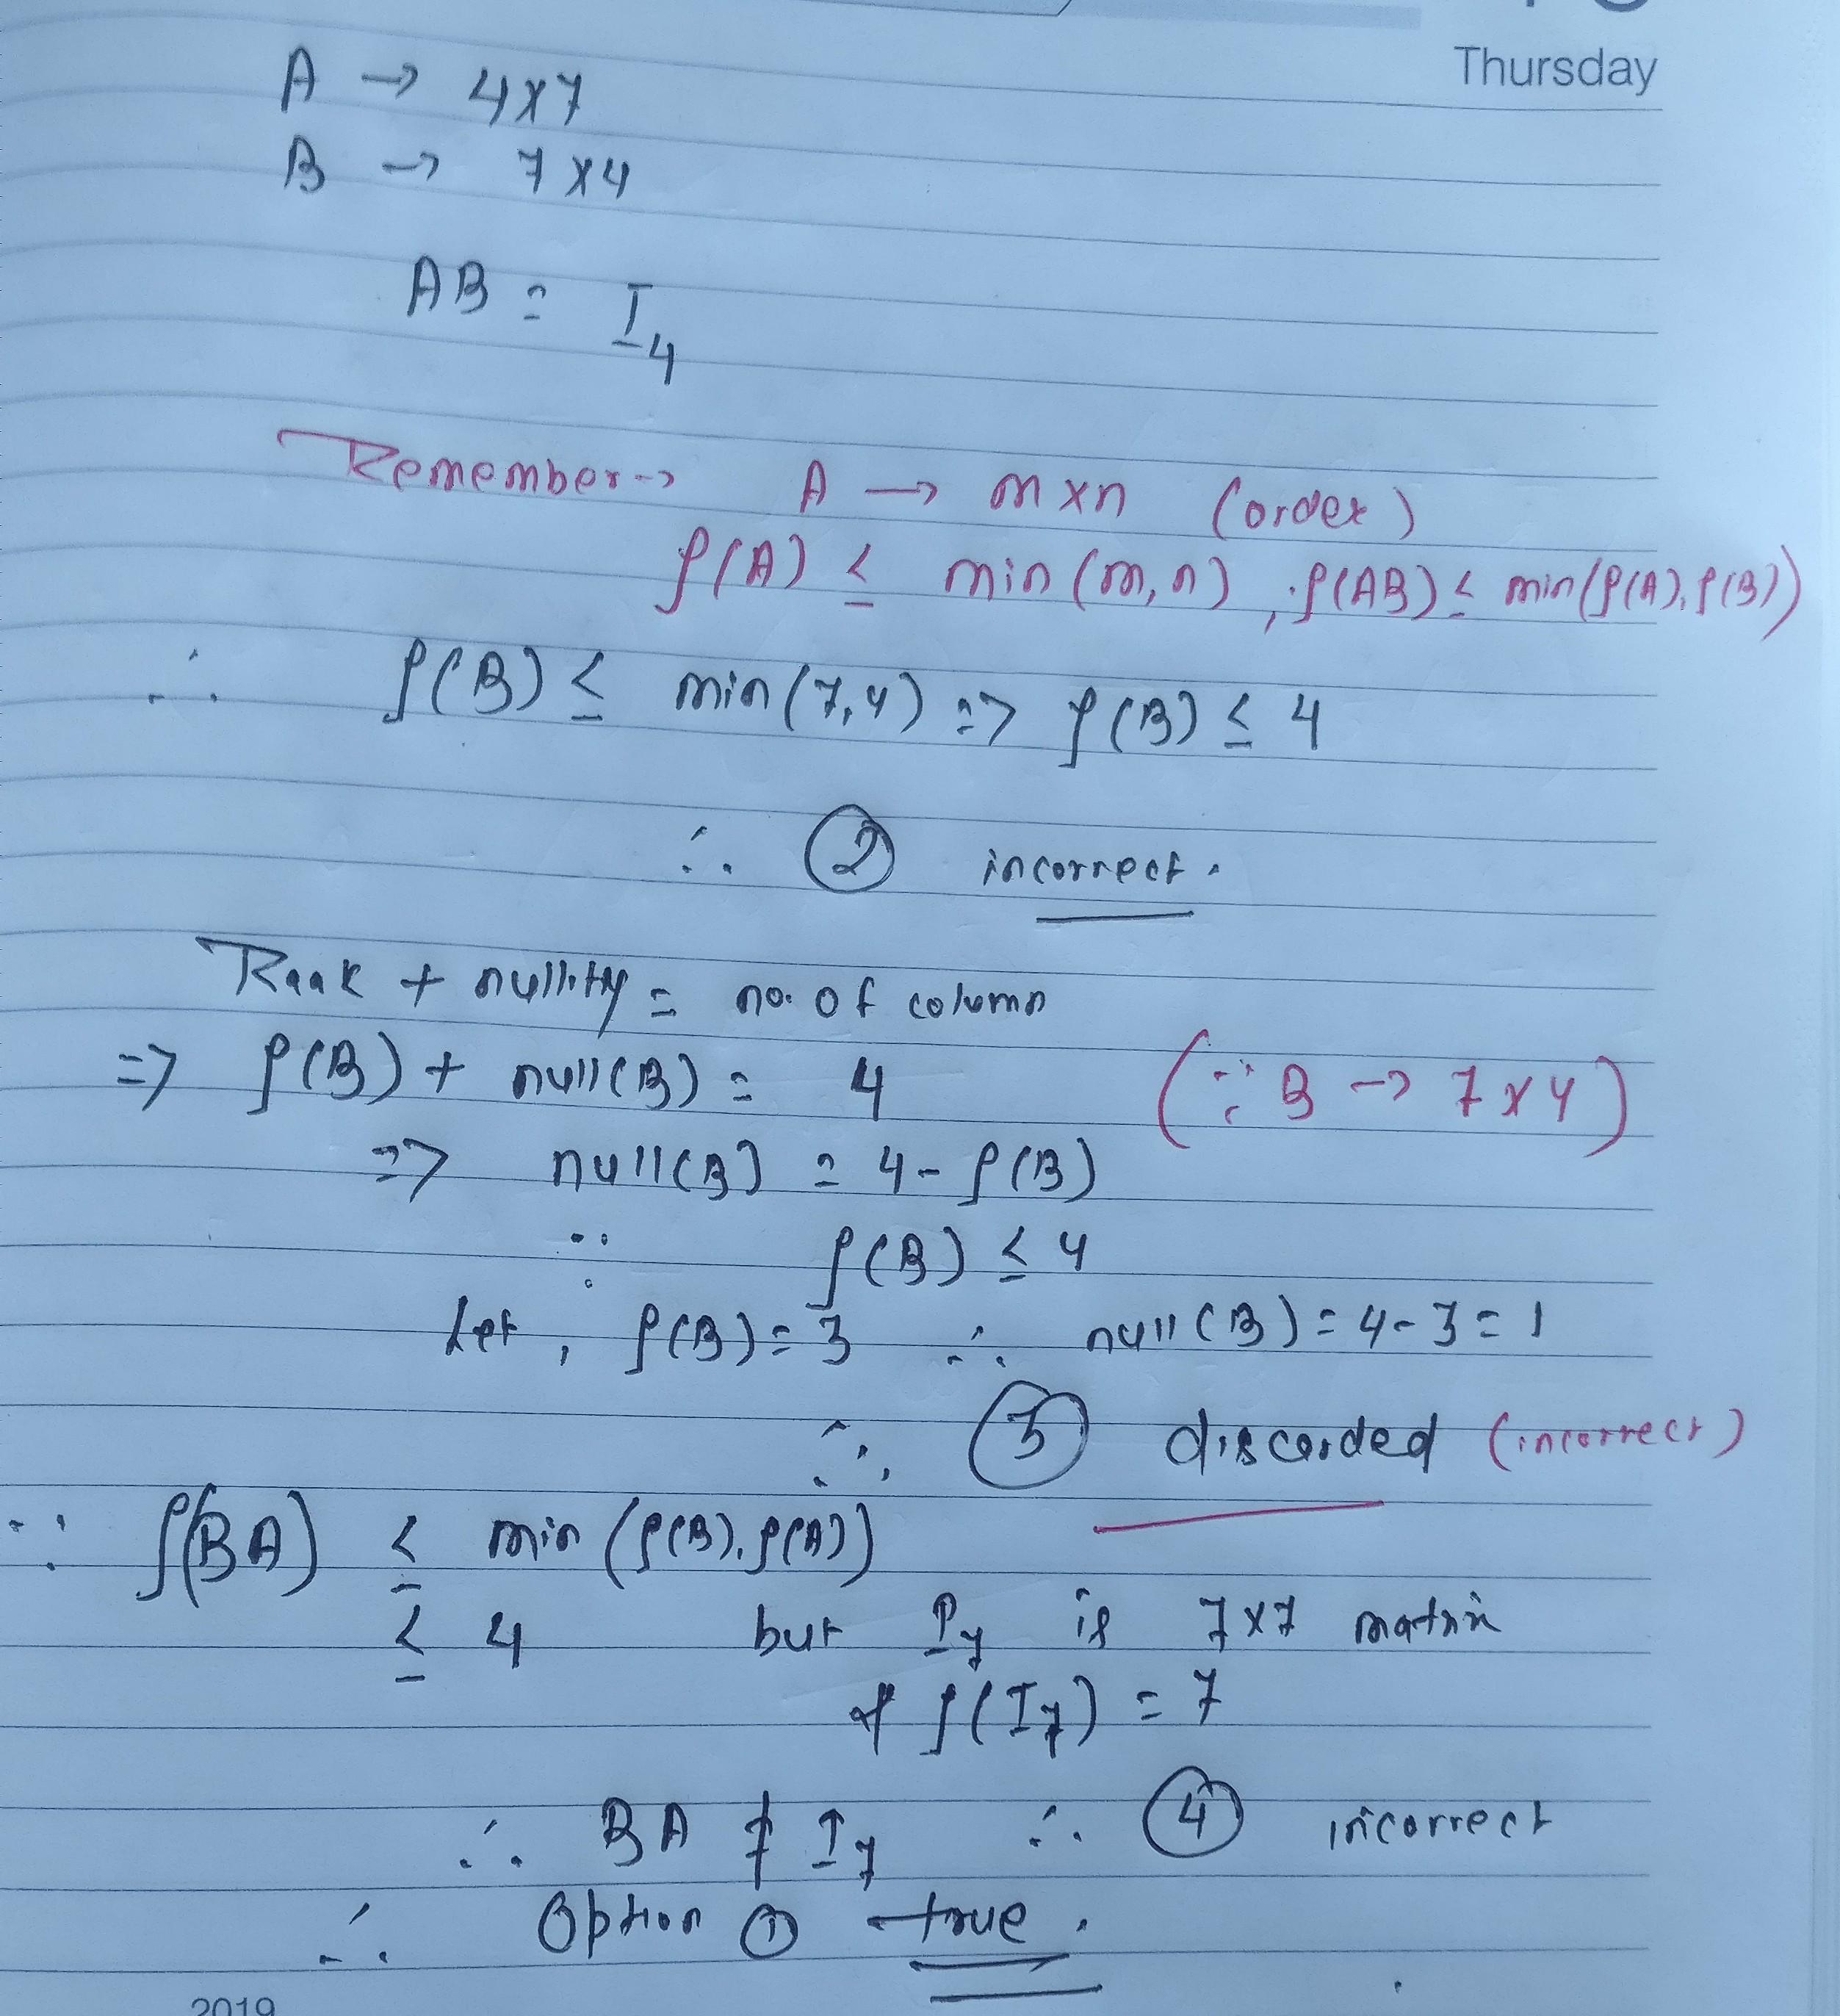 Thursday
A → 4x7
B → 7x4
AB = I₄
Remember → A → mxn (order)
ρ(A) ≤ min(m,n), ρ(AB) ≤ min(ρ(A), ρ(B))
∴ ρ(B) ≤ min(7,4) => ρ(B) ≤ 4
∴ ② incorrect.
Rank + nullity = no. of column
=> ρ(B) + null(B) = 4 (∵ B → 7x4)
=> null(B) = 4-ρ(B)
∵ ρ(B) ≤ 4
Let, ρ(B)=3 ∴ null(B)=4-3=1
∴ ③ discarded (incorrect)
∵ ρ(BA) ≤ min(ρ(B), ρ(A))
≤ 4 but I₇ is 7x7 matrix
& ρ(I₇) = 7
∴ BA ≠ I₇ ∴ ④ incorrect
∴ Option ① true.
2019